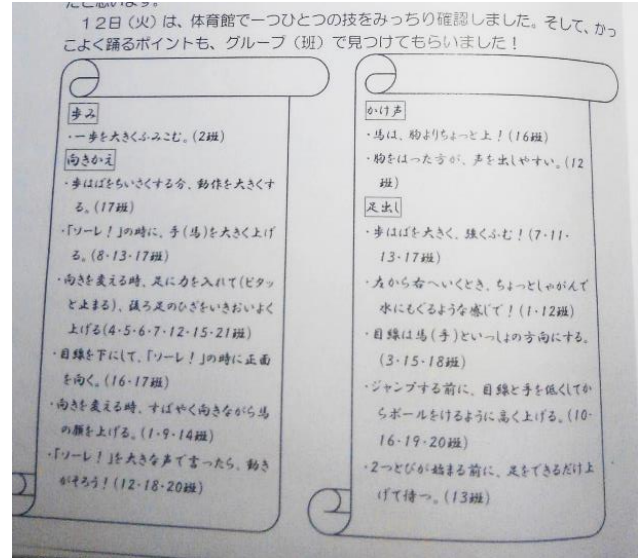 たと思います。
12日（火）は、体育館で一つひとつの技をみっちり確認しました。そして、かっ
こよく踊るポイントも、グループ（班）で見つけてもらいました！
歩み
・一歩を大きくふみこむ。(2班)
向きかえ
・歩はばをちいさくする分、動作を大きくす
る。(17班)
・「ソーレ！」の時に、手(馬)を大きく上げ
る。(8・13・17班)
・向きを変える時、足に力を入れて(ピタッ
と止まる)、後ろ足のひざをいきおいよく
上げる(4・5・6・7・12・15・21班)
・目線を下にして、「ソーレ！」の時に正面
を向く。(16・17班)
・向きを変える時、すばやく向きながら馬
の顔を上げる。(1・9・14班)
・「ソーレ！」を大きな声で言ったら、動き
がそろう！(12・18・20班)
かけ声
・馬は、胸よりちょっと上！(16班)
・胸をはった方が、声を出しやすい。(12
班)
足出し
・歩はばを大きく、強くふむ！(7・11・
13・17班)
・左から右へいくとき、ちょっとしゃがんで
水にもぐるような感じで！(1・12班)
・目線は馬(手)といっしょの方向にする。
(3・15・18班)
・ジャンプする前に、目線と手を低くしてか
らボールをけるように高く上げる。(10・
16・19・20班)
・2つとびが始まる前に、足をできるだけ上
げて待つ。(13班)